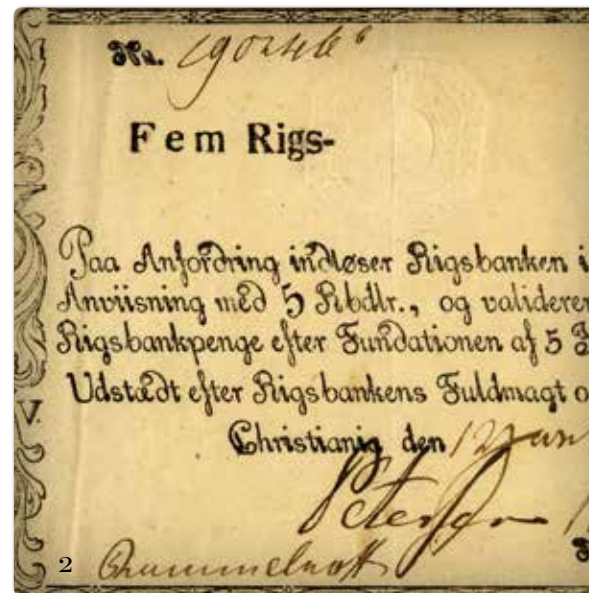 No.
Fem Rigs-
Paa Anfordring indløser Rigsbanken i
Anviisning med 5 Rbdlr., og validerer
Rigsbankpenge efter Fundationen af 5 J
Udstædt efter Rigsbankens Fuldmagt o
V.
Christiania den 12
2